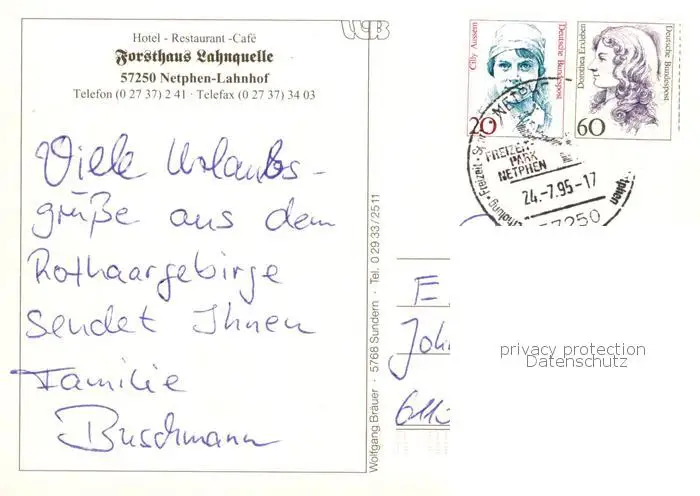 WB
Hotel - Restaurant -Café
Forsthaus Lahnquelle
57250 Netphen-Lahnhof
Telefon (0 27 37) 2 41 · Telefax (0 27 37) 34 03
Viele Urlaubs-
grüße aus dem
Rothaargebirge
sendet Ihnen
Familie
Buschmann
Wolfgang Bräuer · 5768 Sundern · Tel. 0 29 33/25 11
Cilly Aussem
Deutsche Bundespost
20
Dorothea Erxleben
Deutsche Bundespost
60
NETPHEN
FREIZEIT
PARK
NETPHEN
24.-7.95-17
57250
E
Joh
privacy protection
Datenschutz